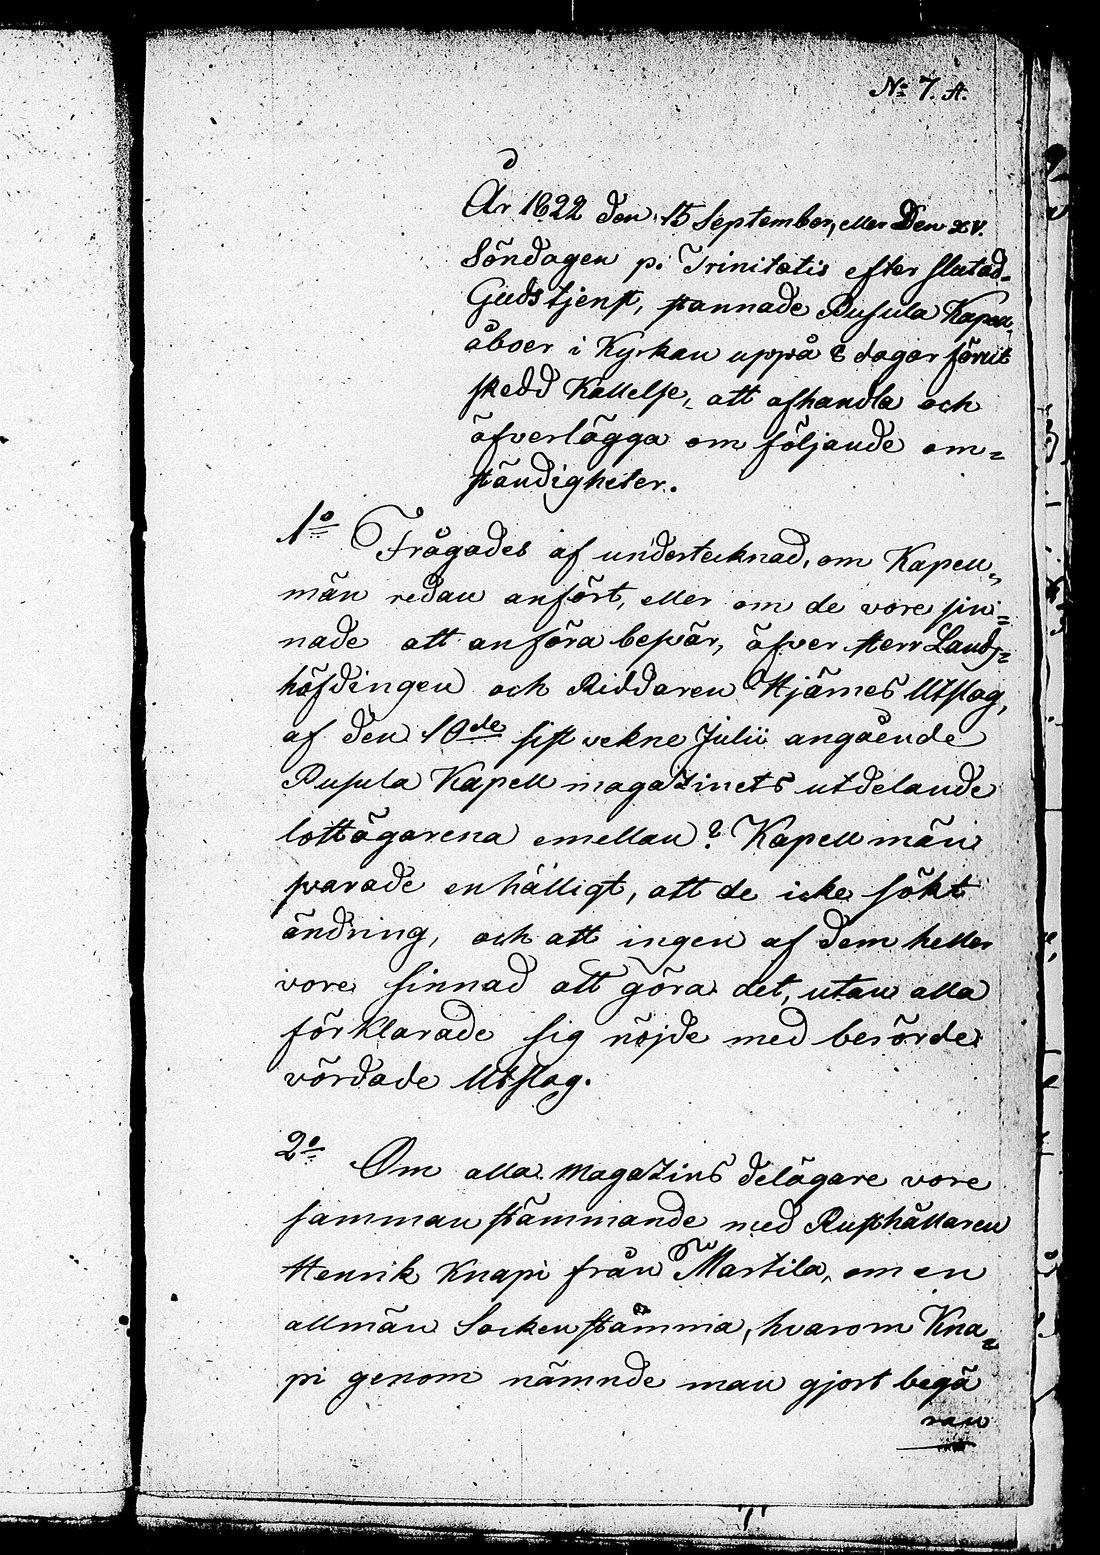 No 7. A.
År 1822 den 15 September, eller Den XV.
Söndagen p. Trinitatis efter slutad
Gudstjenst, stannade Pusula Kapell
åboer i Kyrkan uppå 8 dagar förut
skedd Kallelse, att afhandla och
öfverlägga om följande om=
ständigheter.
1o Frågades af undertecknad, om Kapell=
män redan anfört, eller om de vore sin=
nade att anföra besvär, öfver Herr Lands=
höfdingen och Riddaren Hjärnes Utslag,
af den 10de sist vekne Julii angående
Pusula Kapell magazinets utdelande
lottägarena emellan? Kapell män
svarade enhälligt, att de icke sökt
ändring, och att ingen af dem heller
vore sinnad att göra det, utan alla
förklarade sig nöjde med berörde
vördade Utslag.
2o Om alla Magazins delägare vore
samman stämmande med Rusthållaren
Henrik Knapi från Martila, om en
allmän Sockenstämma, hvarom Kna=
pi genom nämnde man gjort begä
ran